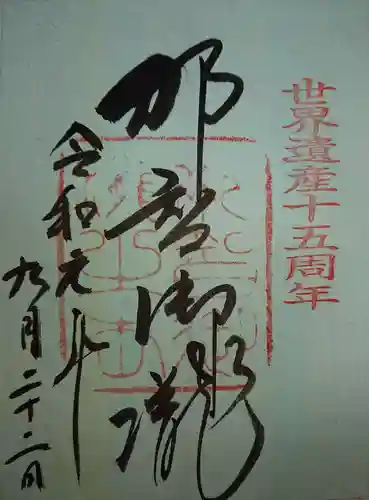 世界遺産十五周年
那智御瀧
令和元年
九月二十二日